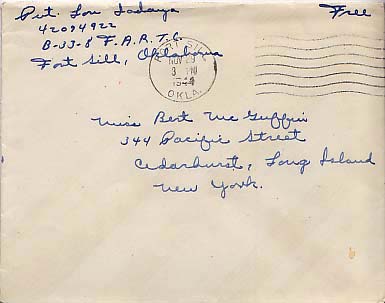 Pvt. Lou Iadanza Free
42094922
B-33-8 F.A.R.T.C.
Fort Sill, Oklahoma
NOV
3 PM
1944
OKLA.
Miss Bert Mc Guffin
344 Pacific Street
Cedarhurst, Long Island
New York.